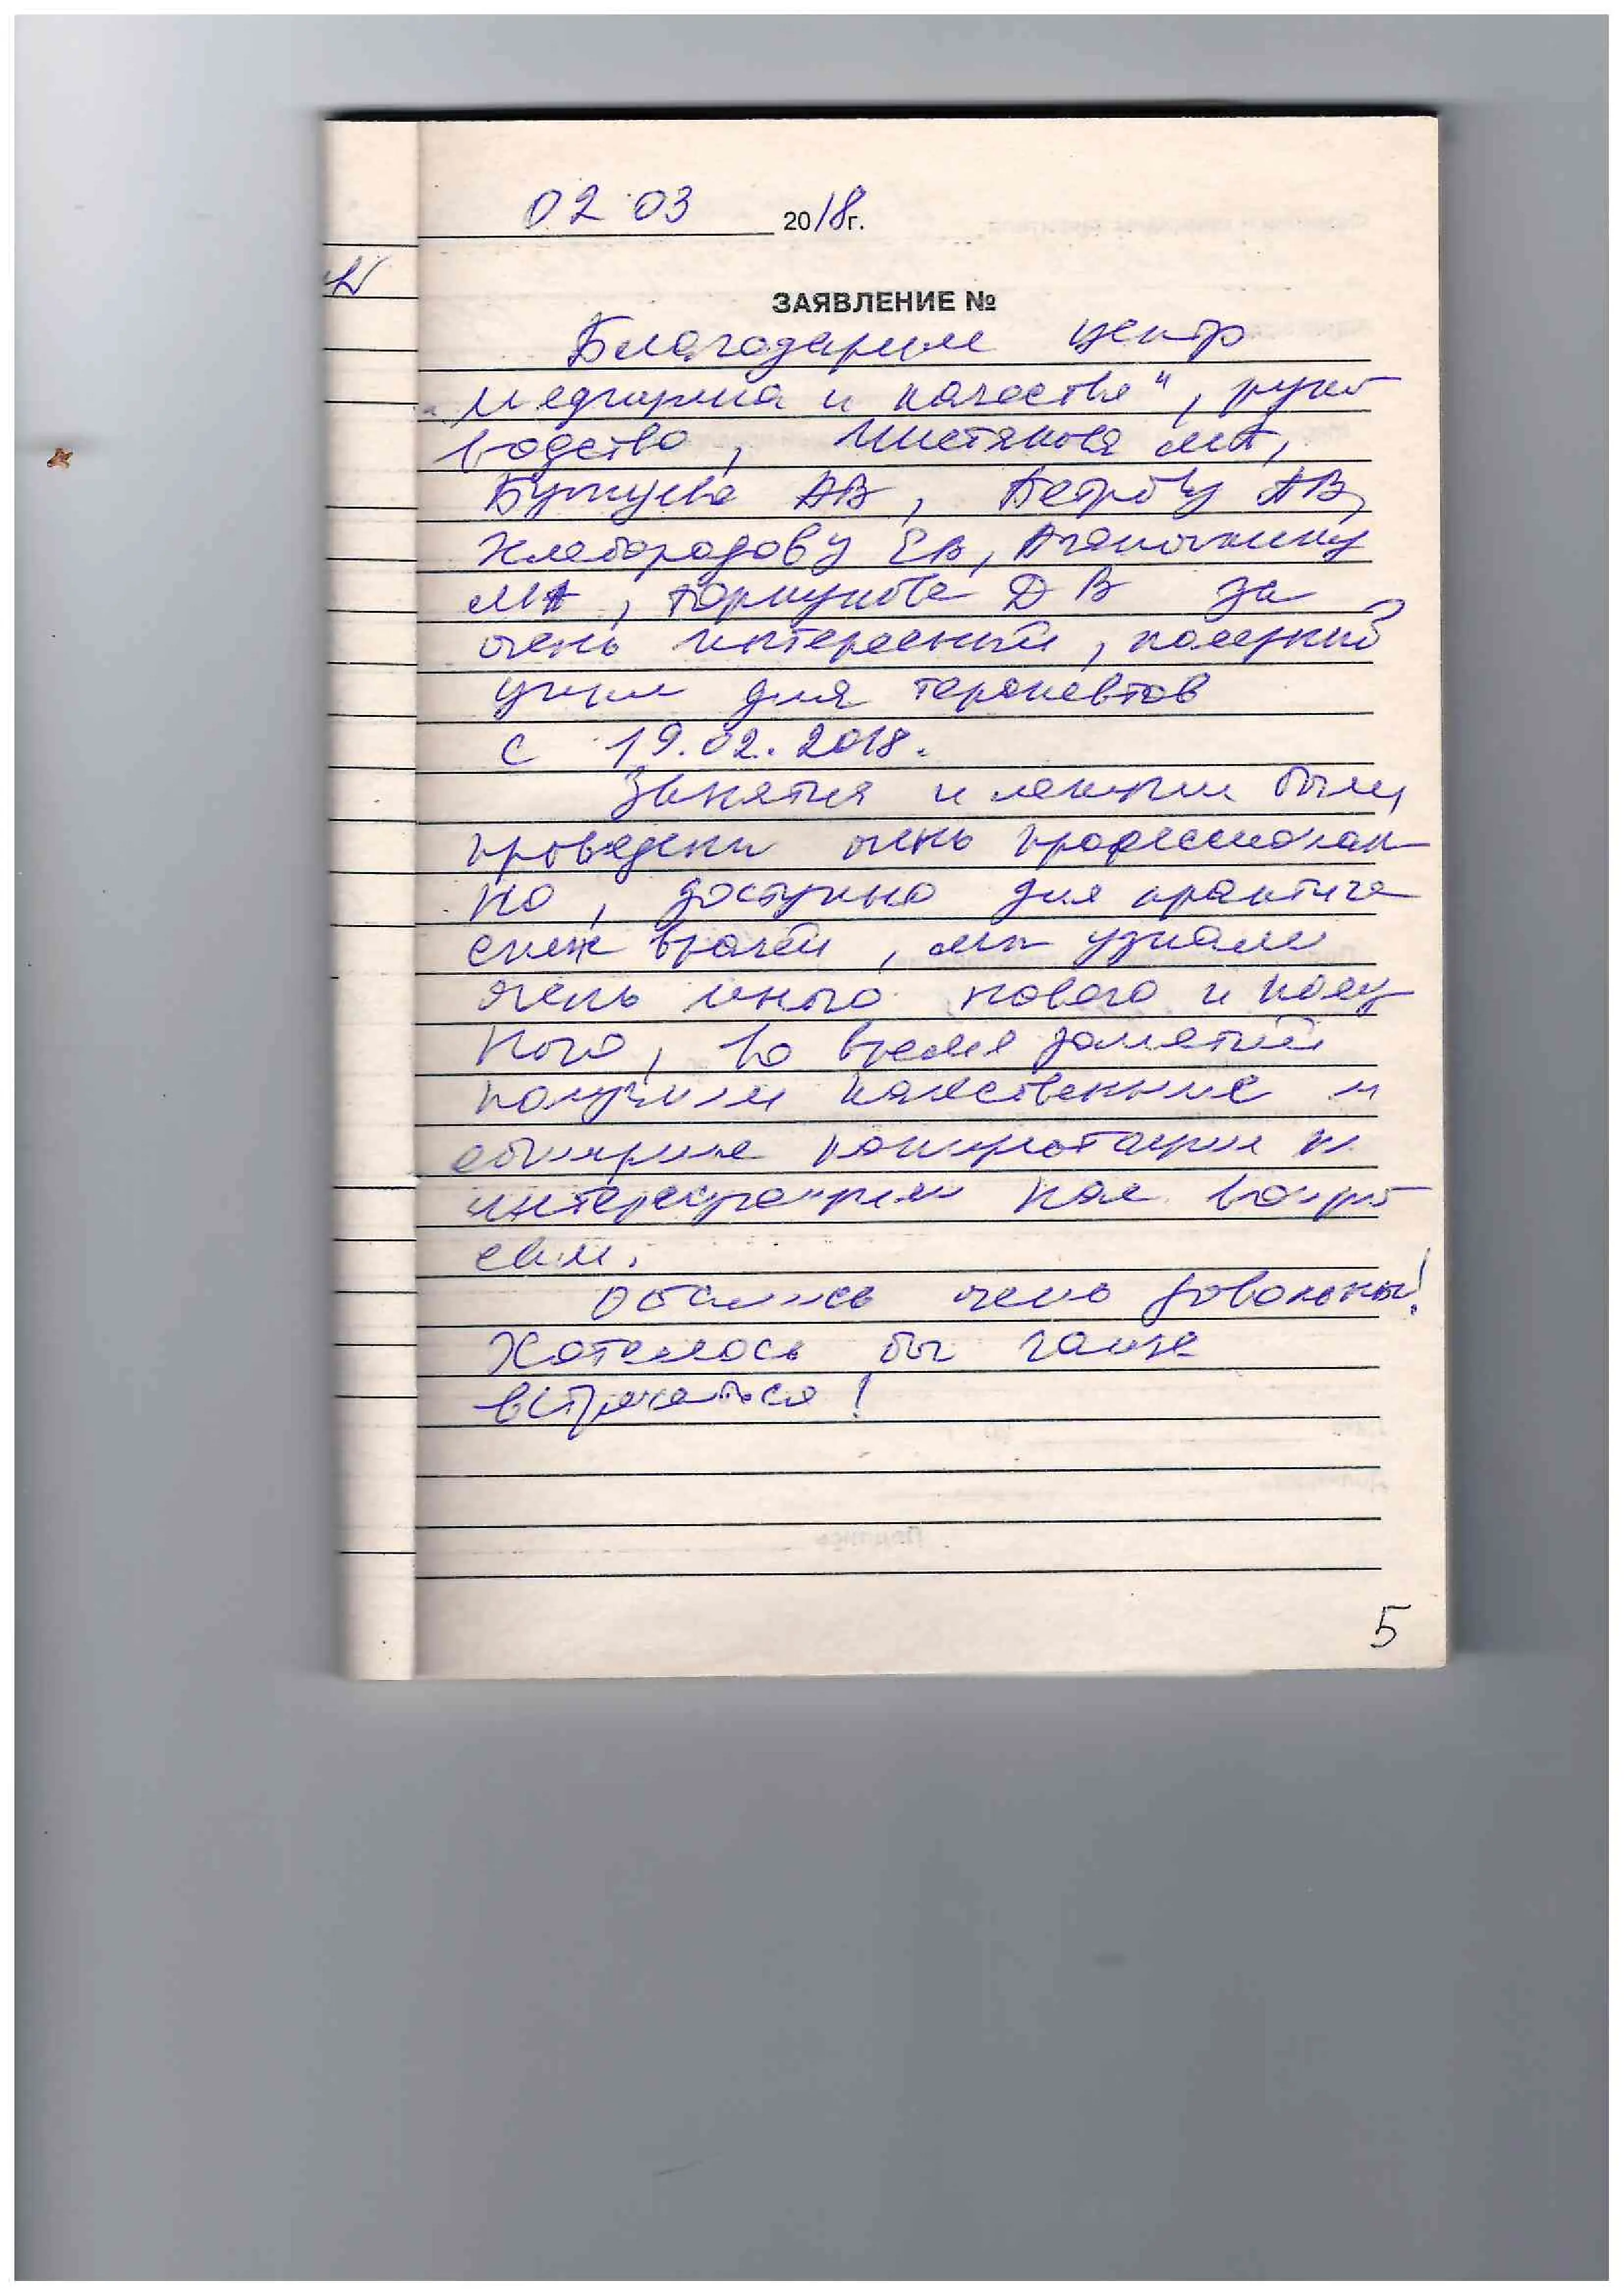 02 03 2018г.
ЗАЯВЛЕНИЕ №
Благодарим центр
"Медицина и качество", руко
водство, Чистякова МА,
АВ, Петрову АВ,
Хлебородову ЕВ,
МА, Горшунова ДВ за
очень интересный, полезный
цикл для терапевтов
с 19.02.2018.
Занятия и лекции были
проведены очень профессионал
но, доступно для практиче
ских врачей, мы узнали
очень много нового и полез
ного, во время занятий
получили качественные и
обширные консультации по
интересующим нас вопро
сам.
Остались очень довольны!
Хотелось бы чаще
встречаться!
5